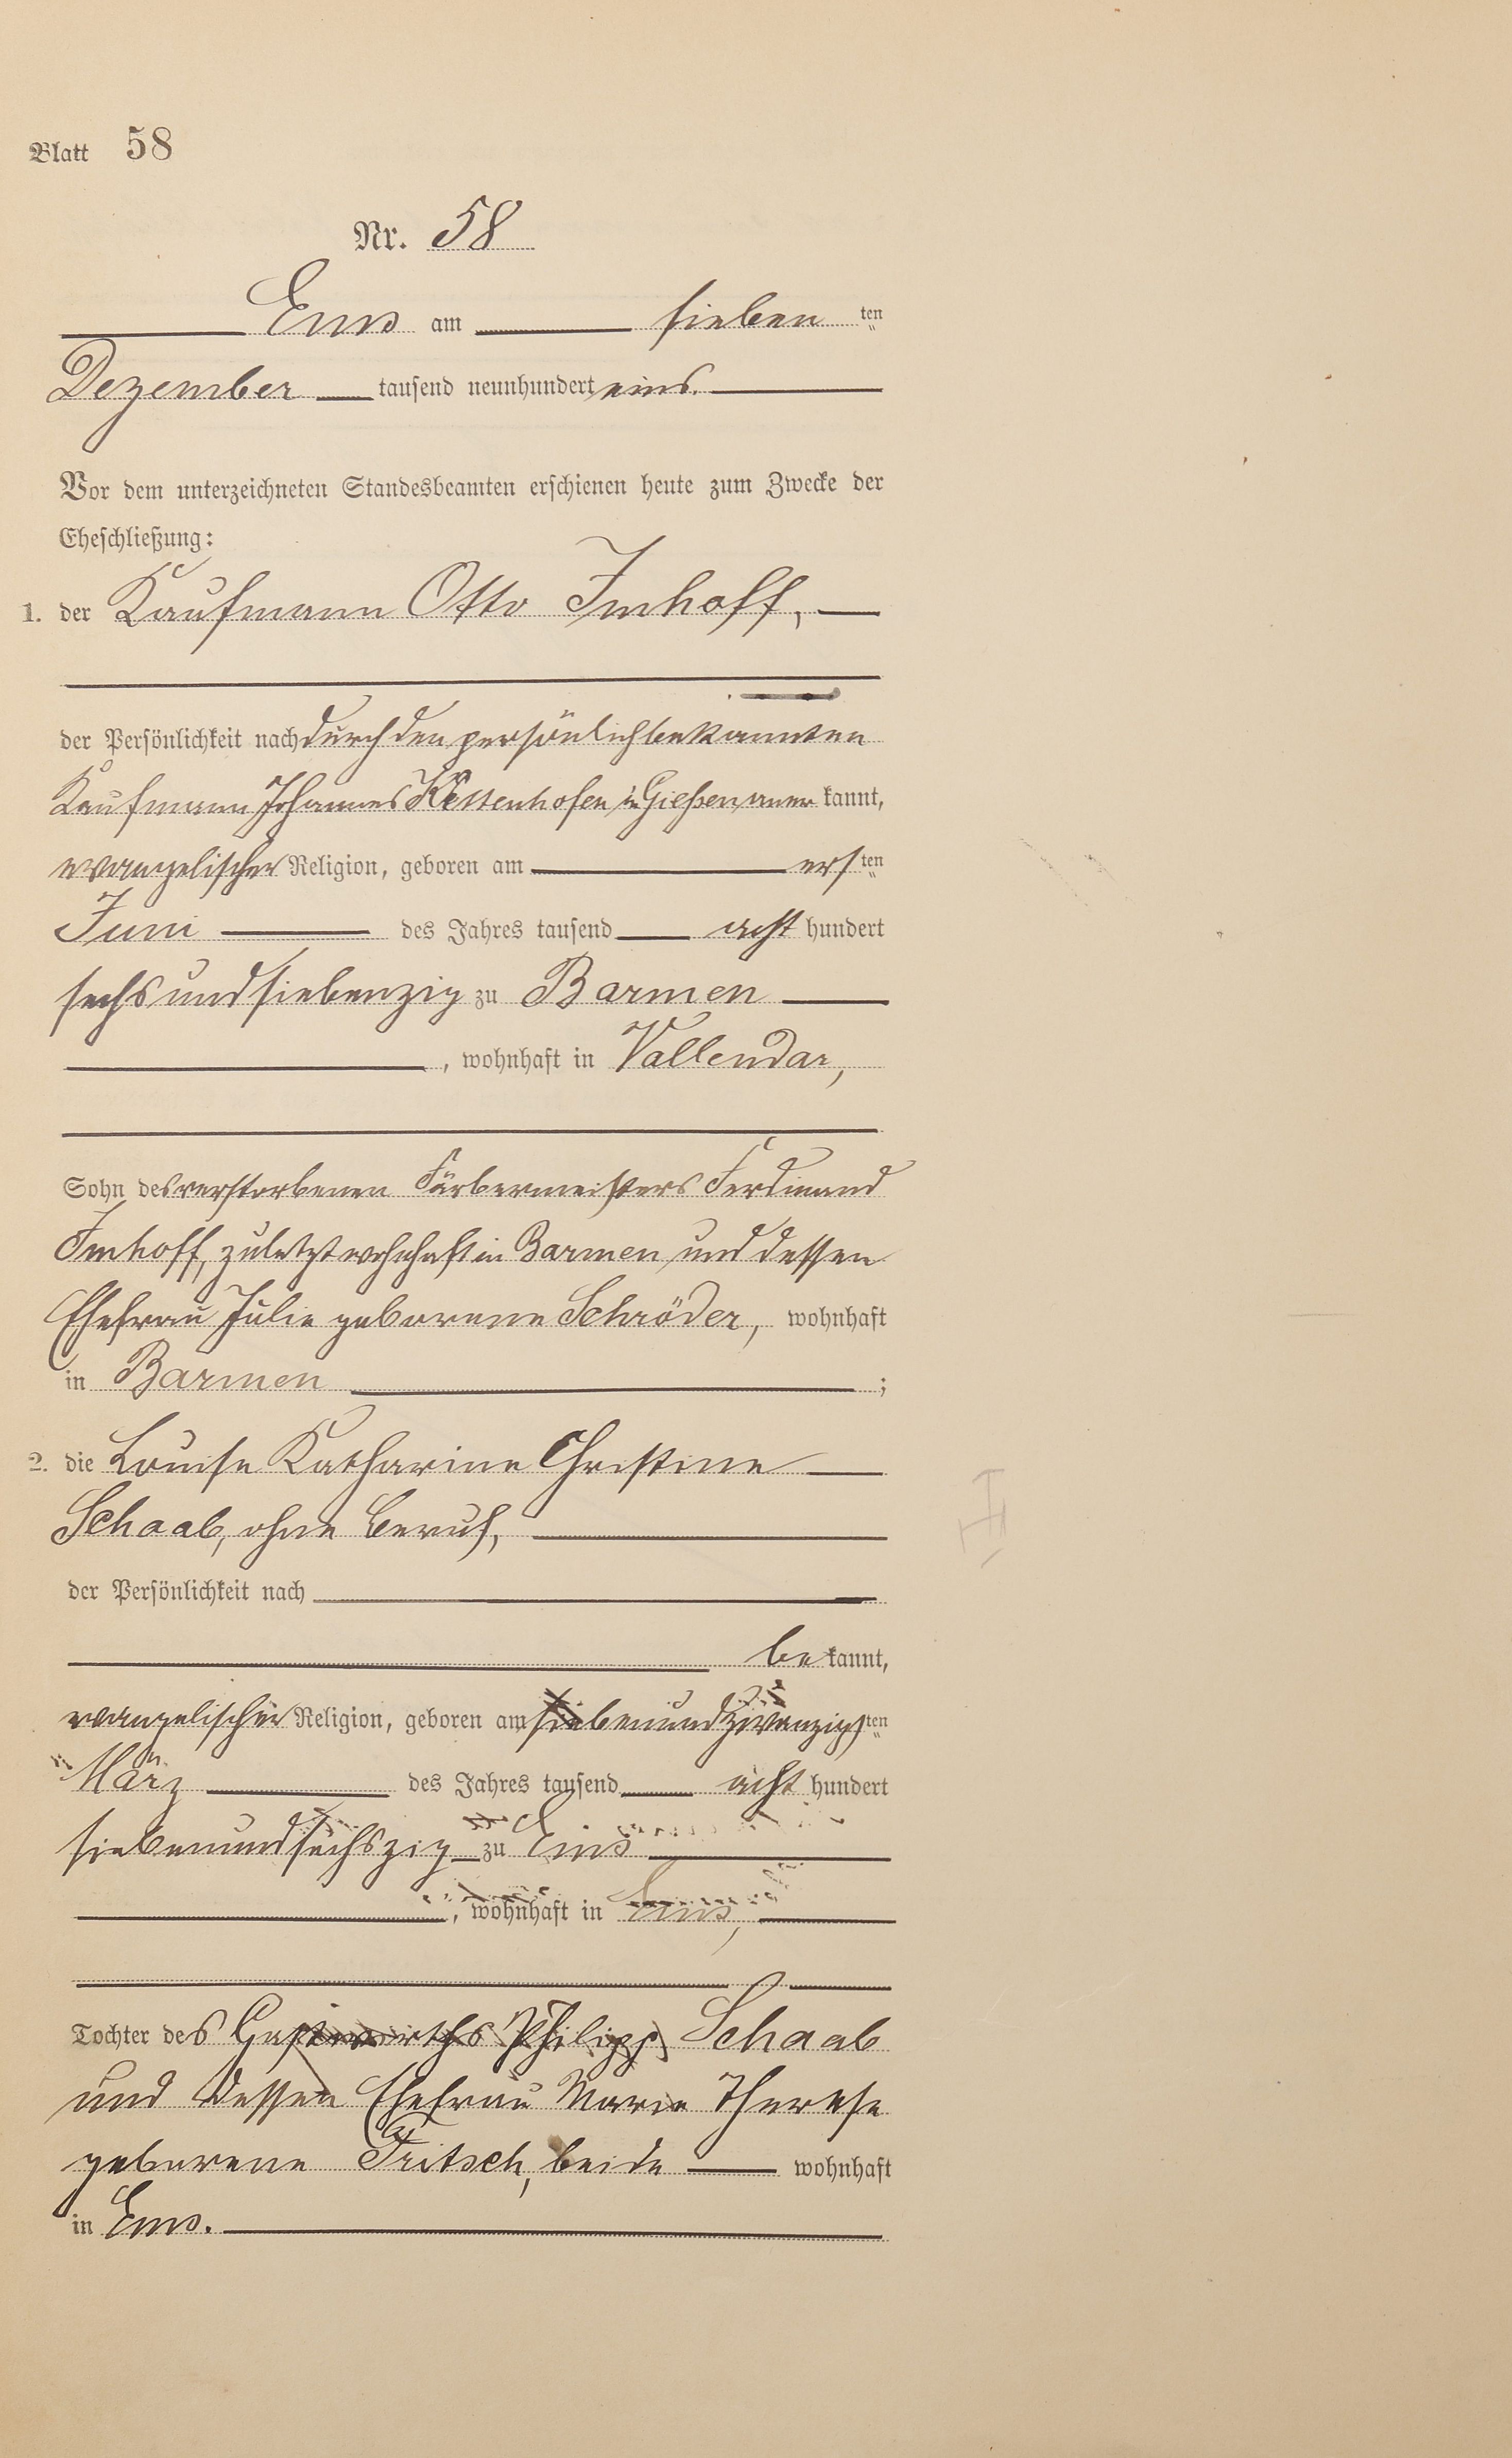 Blatt 58
Nr. 58
Ems am sieben ten
Dezember tausend neunhundert eins.
Vor dem unterzeichneten Standesbeamten erschienen heute zum Zwecke der
Eheschließung:
1. der Kaufmann Otto Imhoff,
der Persönlichkeit nach durch den persönlich bekannten
Kaufmann Johannes Kettenhofen in Gießen aner kannt,
evangelischer Religion, geboren am ers ten
Juni des Jahres tausend acht hundert
sechs und siebenzig zu Barmen
, wohnhaft in Vallendar,
Sohn des verstorbenen Färbermeisters Ferdinand
Imhoff, zuletzt wohnhaft in Barmen und dessen
Ehefrau Julie geborene Schröder, wohnhaft
in Barmen ;
2. die Louise Katharine Christine
Schaab, ohne Beruf,
der Persönlichkeit nach
be kannt,
evangelischer Religion, geboren am siebenundzwanzigs ten
März des Jahres tausend acht hundert
siebenundsechszig zu Ems
, wohnhaft in Ems,
Tochter des Gastwirths Philipp Schaab
und dessen Ehefrau Marie Therese
geborene Fritsch, beide wohnhaft
in Ems.